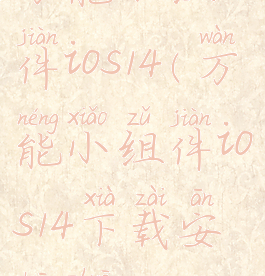 jiàn wàn
件iOS14(万
néng xiǎo zǔ jiàn
能小组件iO
xià zài ān
S14下载安